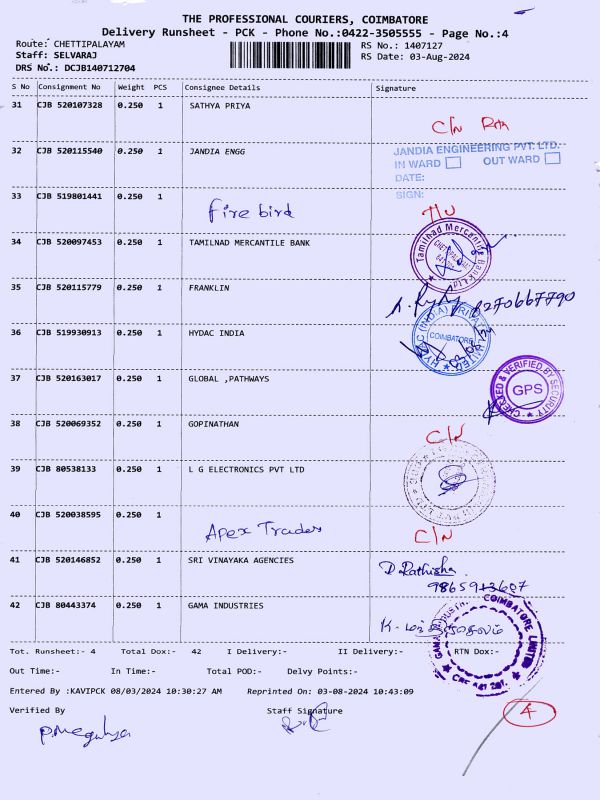 THE PROFESSIONAL COURIERS, COIMBATORE
Delivery Runsheet - PCK - Phone No.:0422-3505555 - Page No.:4
Route: CHETTIPALAYAM
Staff: SELVARAJ
DRS No.: DCJB140712704
RS No.: 1407127
RS Date: 03-Aug-2024
S No Consignment No Weight PCS Consignee Details Signature
31 CJB 520107328 0.250 1 SATHYA PRIYA
C/N
32 CJB 520115540 0.250 1 JANDIA ENGG
JANDIA ENGINEERING PVT. LTD.
IN WARD OUT WARD
DATE:
SIGN:
33 CJB 519801441 0.250 1 Fire bird
34 CJB 520097453 0.250 1 TAMILNAD MERCANTILE BANK
Tamilnad Mercantile Bank Ltd
35 CJB 520115779 0.250 1 FRANKLIN
8270667790
36 CJB 519930913 0.250 1 HYDAC INDIA
HYDAC (INDIA) PRIVATE LIMITED
COIMBATORE
37 CJB 520163017 0.250 1 GLOBAL ,PATHWAYS
CHECKED & VERIFIED BY SECURITY
GPS
38 CJB 520069352 0.250 1 GOPINATHAN
C/N
39 CJB 80538133 0.250 1 L G ELECTRONICS PVT LTD
40 CJB 520038595 0.250 1 Apex Traders
C/N
41 CJB 520146852 0.250 1 SRI VINAYAKA AGENCIES
D. Rathisha
42 CJB 80443374 0.250 1 GAMA INDUSTRIES
COIMBATORE LIMITED
Tot. Runsheet:- 4 Total Dox:- 42 I Delivery:- II Delivery:- RTN Dox:-
Out Time:- In Time:- Total POD:- Delvy Points:-
Entered By :KAVIPCK 08/03/2024 10:30:27 AM Reprinted On: 03-08-2024 10:43:09
Verified By Staff Signature
4